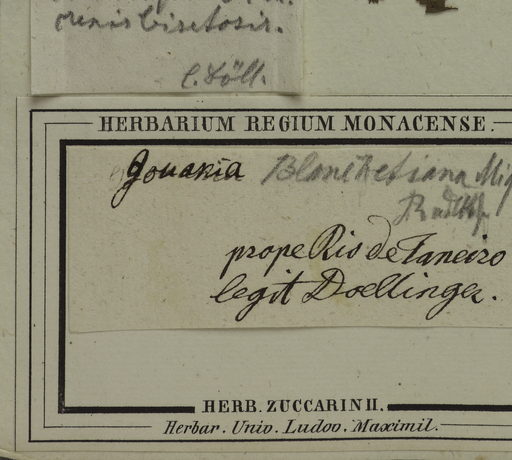 crenis bisetosis.
C. Döll.
HERBARIUM REGIUM MONACENSE.
Gouania Blanchetiana Miq
Radlkf.
prope Rio de Janeiro
legit Doellinger.
HERB. ZUCCARINII.
Herbar. Univ. Ludov. Maximil.